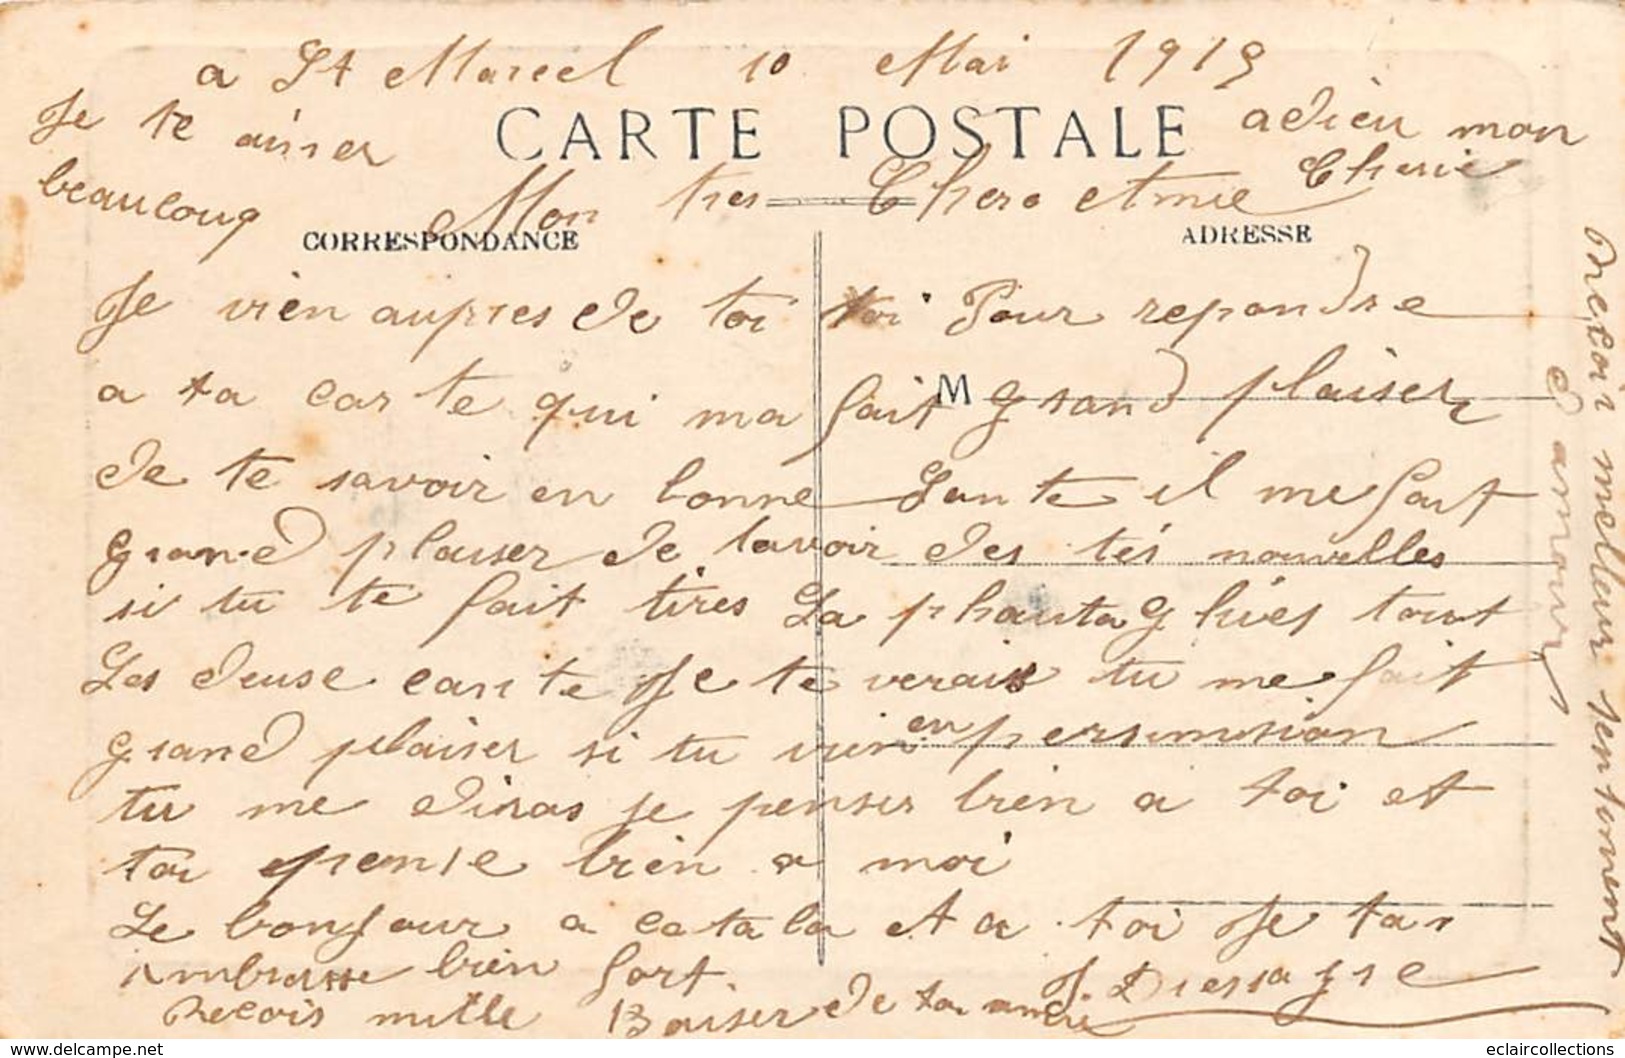 a St Marcel 10 Mai 1919
Je te aimer
beaucoup
CARTE POSTALE
adieu mon
Cherie
Mon tres Chere etmie
CORRESPONDANCE
ADRESSE
Je vien aupres de toi toi Pour repondre
a ta carte qui ma fait M grand plaiser
de te savoir en bonne Sante il me fait
grand plaiser de lavoir des tes nouvelles
si tu te fait tires La phauta
Les deuse cante Je te verais tu me fait
grand plaiser si tu vien en
tu me diras je penser bien a toi et
toi pense bien a moi
Le bonjour a et a toi Je tan
imbrasse bien fort.
Recois mille Baiser de ton amie
Recoir melleur sentiment
d amour
www.delcampe.net
eclaircollections